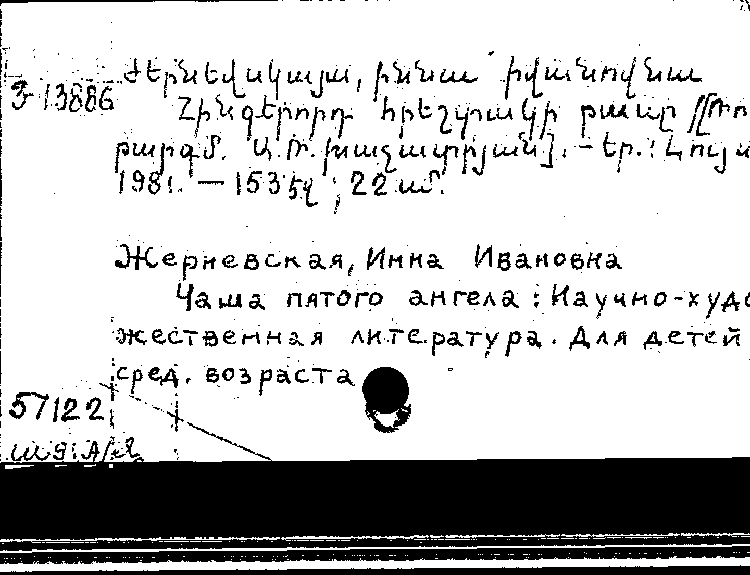 Ժերնևսկայա, Իննա Իվանովնա
Ֆ 13886
Հինգերորդ հրեշտակի թասը /[Ռու
թարգմ. Ա. Ռ. Խաչատրյան]. - Եր.: Լույս
1981. — 153 էջ ; 22 սմ.
Жерневская, Инна Ивановна
Чаша пятого ангела : Научно-худо
жественная литература. Для детей
сред. возраста
57122